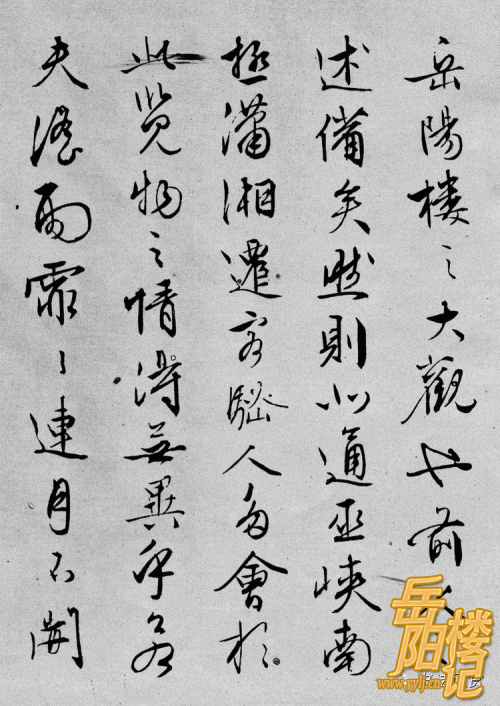 岳陽樓之大觀也前
述備矣然則北通巫峽南
極瀟湘遷客騷人多會於
此覽物之情得無異乎若
夫淫雨霏〻連月不開
岳阳楼记
www.yylj.cn